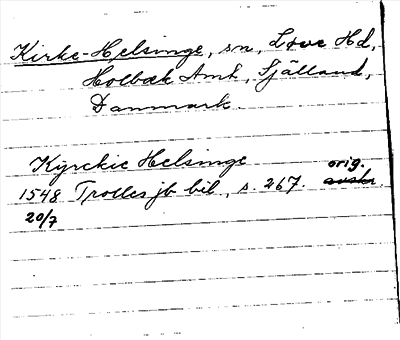 Kirke-Helsinge, sn, Løve Hd,
Holbæk Amt, Själland,
Danmark.
Kyrckie Helsinge orig.
1548 Trolles jb bil., s. 267. avskr.
20/7